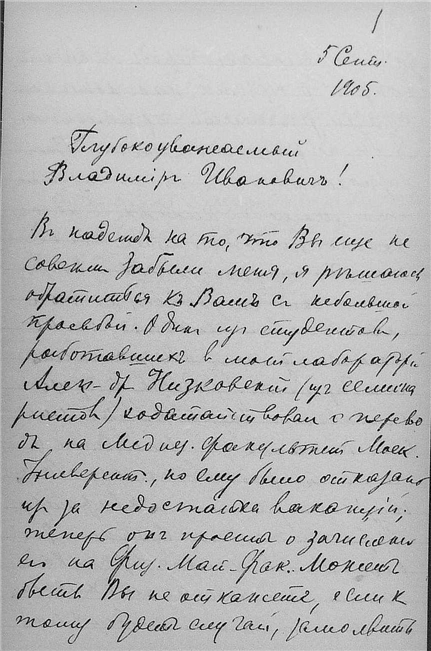 1
5 Сент.
1905.
Глубокоуважаемый
Владимiръ Ивановичъ!
Въ надеждѣ на то, что Вы еще не
совсѣмъ забыли меня, я рѣшаюсь
обратиться къ Вамъ съ небольшой
просьбой. Одинъ изъ студентовъ,
работавшихъ въ моей лабораторiи
Алек-дръ Низковскiй (изъ семина
ристовъ) ходатайствовалъ о перево
дѣ на Медиц. факультетъ Моск.
Университ., но ему было отказано
из за недостатка вакансiй;
теперь онъ проситъ о зачисленiи
его на Физ. Мат. Фак. Можетъ
быть Вы не откажете, если къ
тому будетъ случай, замолвить